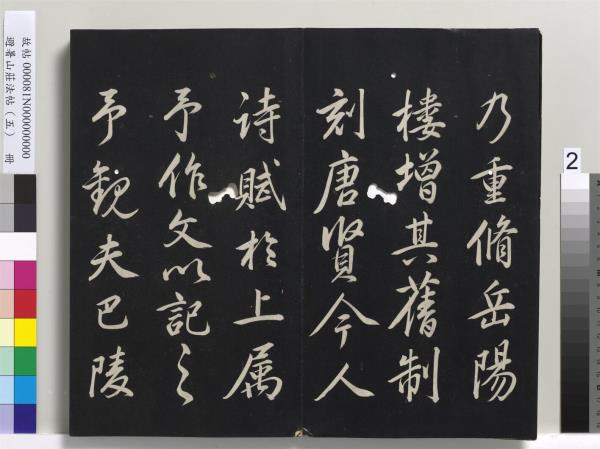 乃重脩岳陽
樓增其舊制
刻唐賢今人
詩賦於上属
予作文以記之
予觀夫巴陵
故帖 000081N000000000
避暑山莊法帖（五） 冊
2